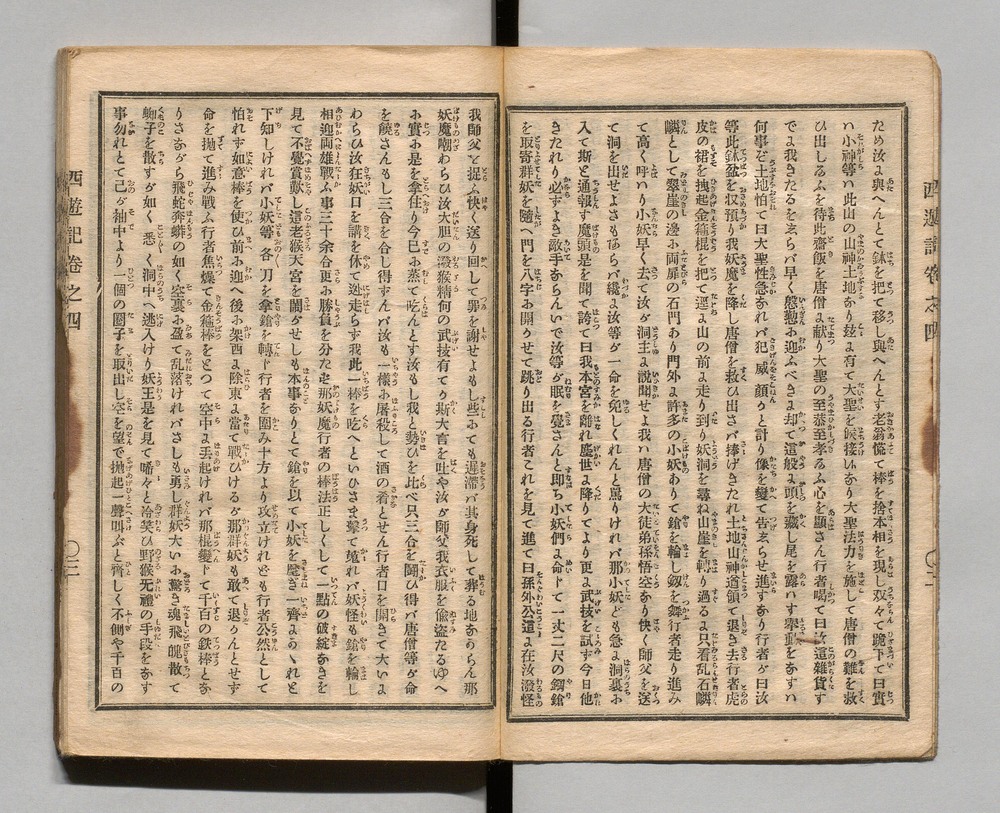 ため汝に與へんとて鉢を把て移し與へんとす老翁慌て棒を捨本相を現し双々て跪下て曰實
ハ小神等ハ此山の山神土地なり玆に有て大聖を候接いなり大聖法力を施して唐僧の難を救
ひ出しるふを待此齋飯を唐僧に献り大聖の至恭至孝るふ心を顯さん行者喝て曰汝這雜貨す
でに我きたるを志らバ早く慇懃に迎ふべきに却て這般に頭を藏し尾を露ハす擧動をなすハ
何事ぞ土地怕て曰大聖性急なれバ犯威顔うと計り像を變へ告志らせ進すなり行者が曰汝
等此鉢盆を収預り我妖魔を降し唐僧を救ひ出さバ捧げきたれ土地山神道領て退き去行者虎
皮の裙を拽起金箍棍を把て逕に山の前に走り到り妖洞を尋ね山崖を轉り過るに只看乱石嶙
嶙として翠崖の邊に両扉の石門あり門外に許多の小妖ありて鎗を輪し釼を舞行者走り進み
て高く呼ハり小妖早く去て汝が洞主に說聞せよ我ハ唐僧の大徒弟孫悟空なり快く師父を送
て洞を出せよさもなくバ纔に汝等が一命を免しくれんと罵りけれバ那小妖ども急に洞裏に
入て斯と通報す魔頭是を聞て誇て曰我本宮を離れ塵世に降りてより更に武技を試す今日他
きたれり必ずよき敵手ならんいで汝等が眠を覺さんと即ち小妖們に命トて一丈二尺の鋼鎗
を取寄群妖を隨へ門を八字に開らせて跳り出る行者これを見て進て曰孫外公這に在汝潑怪
西遊記卷之四
〇二
我師父を捉ふ快く送り回して罪を謝せよもし些にても遲滯バ其身死して葬る地なのらん那
妖魔嘲わらひ汝大胆の潑猴精何の武技有てり斯大言を吐や汝が師父我衣服を偸盗たるゆへ
に實に是を拿住り今已に蒸て吃んとす汝もし我と勢ひを比べ只三合を鬪ひ得バ唐僧等が命
を饒さんもし三合を合し得ずんバ汝も一樣に屠殺して酒の肴とせん行者曰を開きて大いに
わらひ汝狂妖口を講を休て迯走らず我此一棒を吃へといひさま擧て䠖れバ妖怪も鎗を輪し
相迎両雄戰ふ事三十余合更に勝負を分たず那妖魔行者の棒法正しくして一點の破綻なきを
見て不覺賞歎し這老猴天宮を鬧がせしも本事なりとて鎗を以て小妖を麾ぎ一齊にかゝれと
下知しけれバ小妖等各刀を拿鎗を轉ト行者を圍み十方より攻立けれども行者公然として
怕れず如意棒を使ひ前に迎へ後に架西に除東に當て戰ひけるが那群妖も敢て退りんとせず
命を拋て進み戰ふ行者焦燥て金箍棒をとつて空中に丟起けれバ那棍變トて千百の鉄棒とな
りさながら飛蛇奔蟒の如く空裏に盈て乱落けれバさしも勇し群妖大いに驚き魂飛魄散て
蜘子を散すが如く悉く洞中へ迯入けり妖王是を見て嗜々と冷笑ひ野猴无禮の手段をなす
事勿れとて己が袖中より一個の圈子を取出し空を望で拋起一聲叫ぶと齊しく不側や千百の
西遊記卷之四
〇三